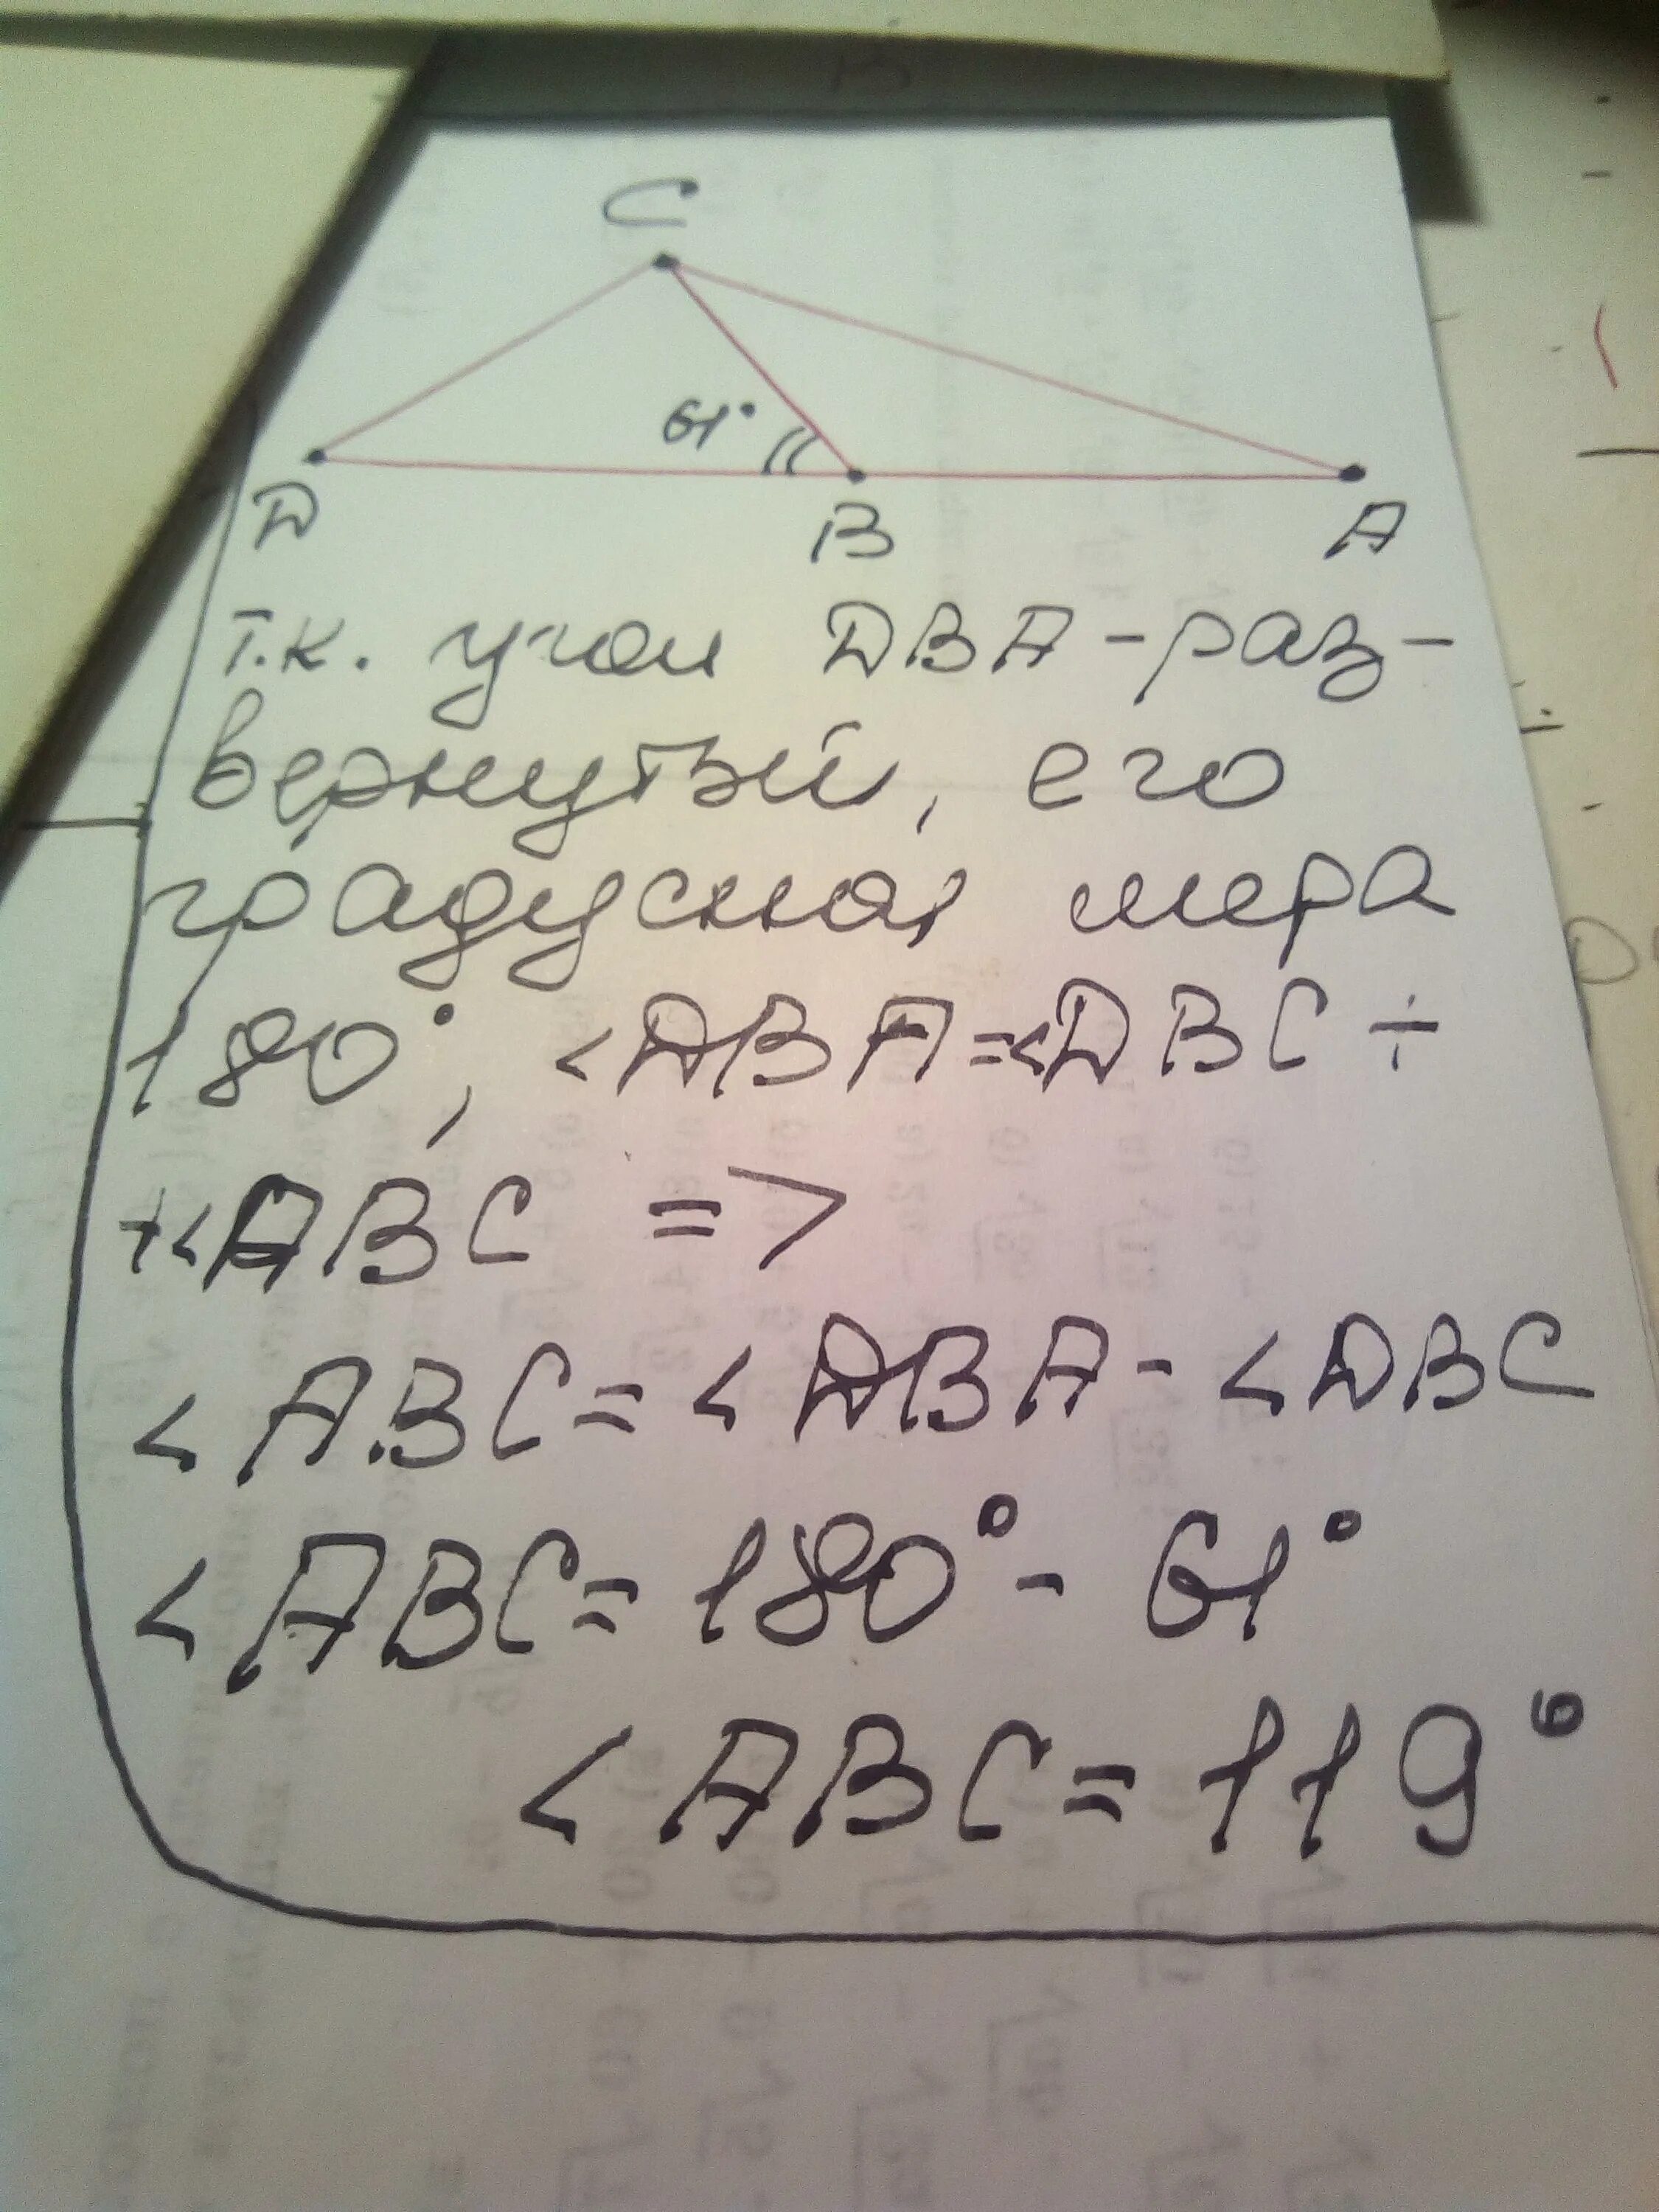 C
61°
D B A
т.к. угол DBA - раз-
вернутый, его
градусная мера
180°, <DBA=<DBC +
+<ABC =>
<ABC= <DBA - <DBC
<ABC= 180° - 61°
<ABC= 119°